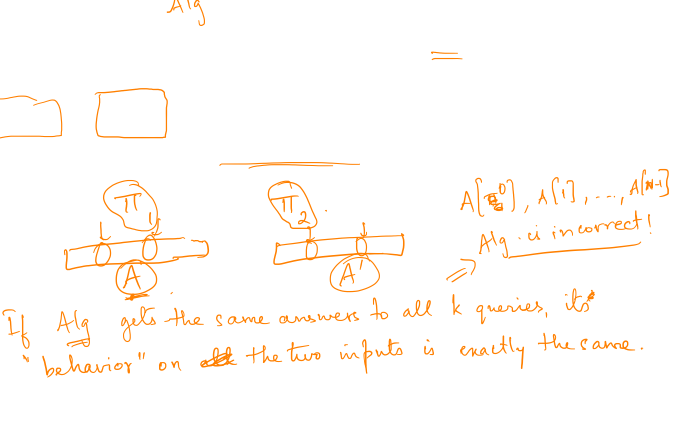 Alg
π1
π2
A[0], A[1], ..., A[n-1]
Alg. is incorrect!
A
A'
If Alg gets the same answers to all k queries, its
"behavior" on the two inputs is exactly the same.